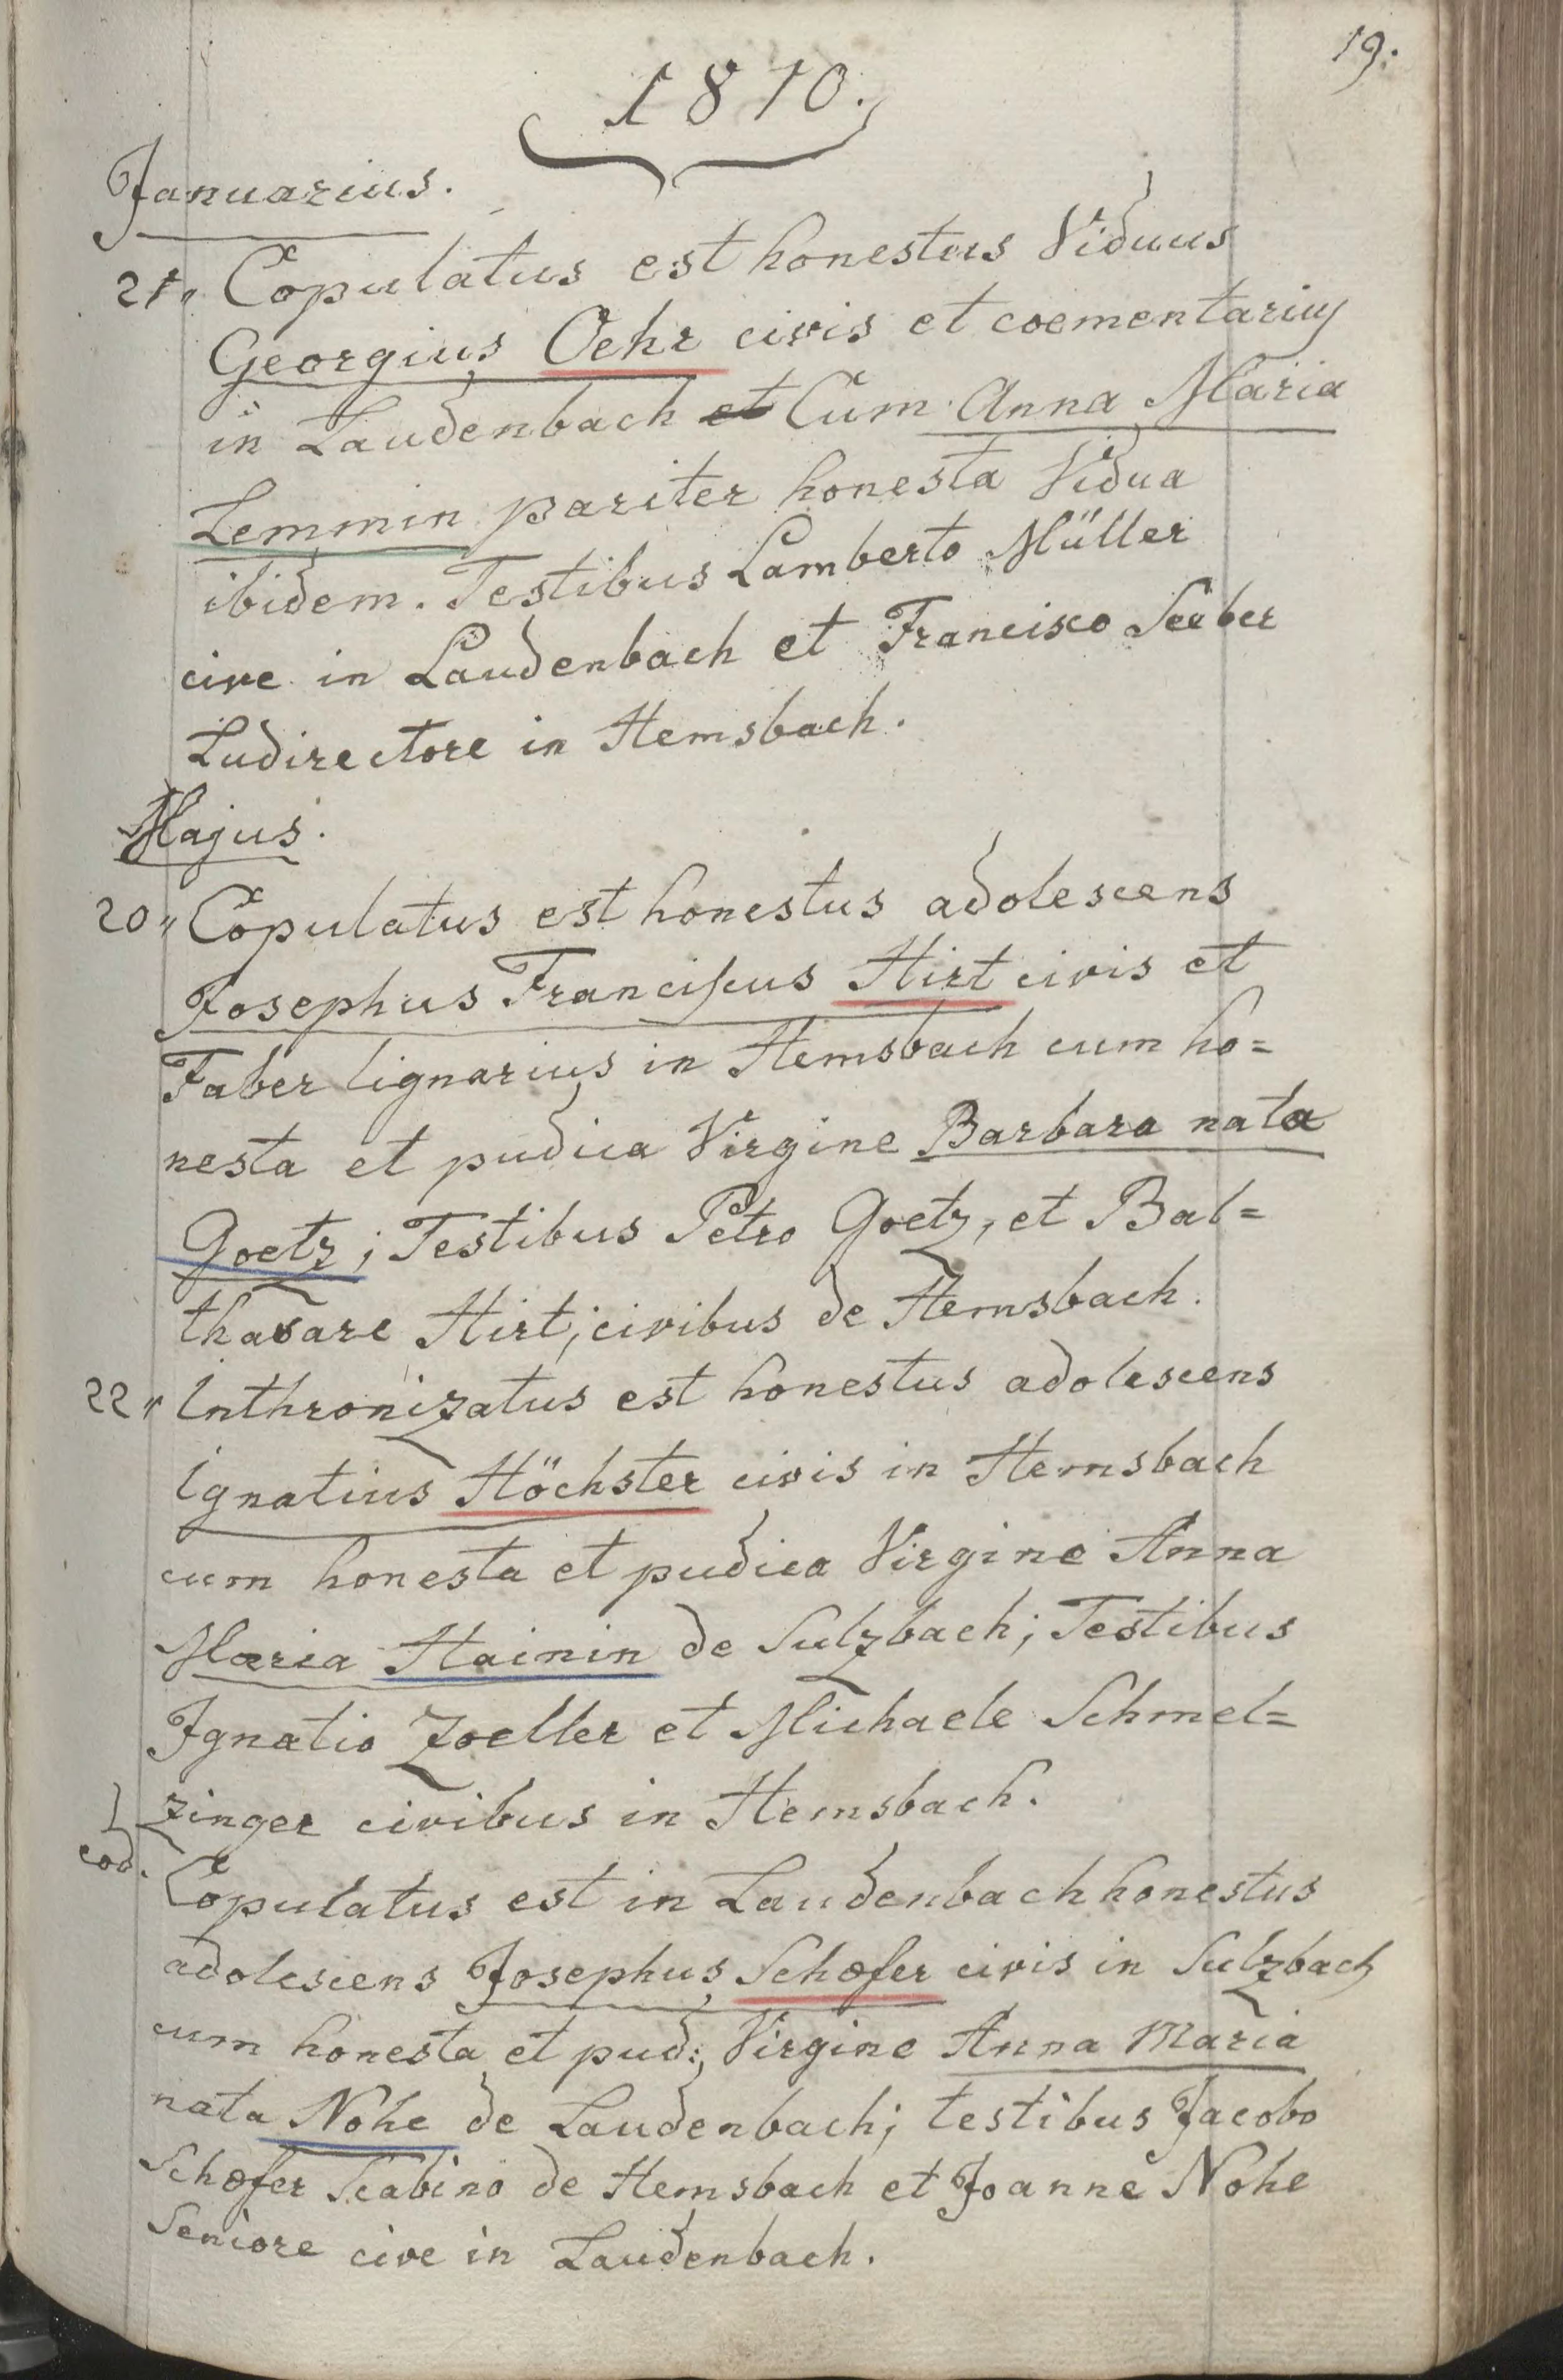 19.
1810.
Januarius.
21„ Copulatus est honestus Viduus
Georgius Oehr civis et coementarius
in Laudenbach et Cum Anna Maria
Lemmin pariter honesta Vidua
ibidem. Testibus Lamberto Müller
cive in Laudenbach et Francisco Seeber
Ludirectore in Hemsbach.
Majus.
20„ Copulatus est honestus adolescens
Josephus Franciscus Hirt civis et
Faber lignarius in Hemsbach cum ho=
nesta et pudica Virgine Barbara nata
Goetz; Testibus Petro Goetz, et Bal=
thasare Hirt; civibus de Hemsbach.
22„ Inthronizatus est honestus adolescens
Ignatius Höchster civis in Hemsbach
cum honesta et pudica Virgine Anna
Maria Hainin de Sulzbach; Testibus
Ignatio Zoeller et Michaele Schmel=
zinger civibus in Hemsbach.
eod. Copulatus est in Laudenbach honestus
adolescens Josephus Schæfer civis in Sulzbach
cum honesta et pud: Virgine Anna Maria
nata Nohe de Laudenbach; testibus Jacobo
Schæfer Scabino de Hemsbach et Joanne Nohe
Seniore cive in Laudenbach.